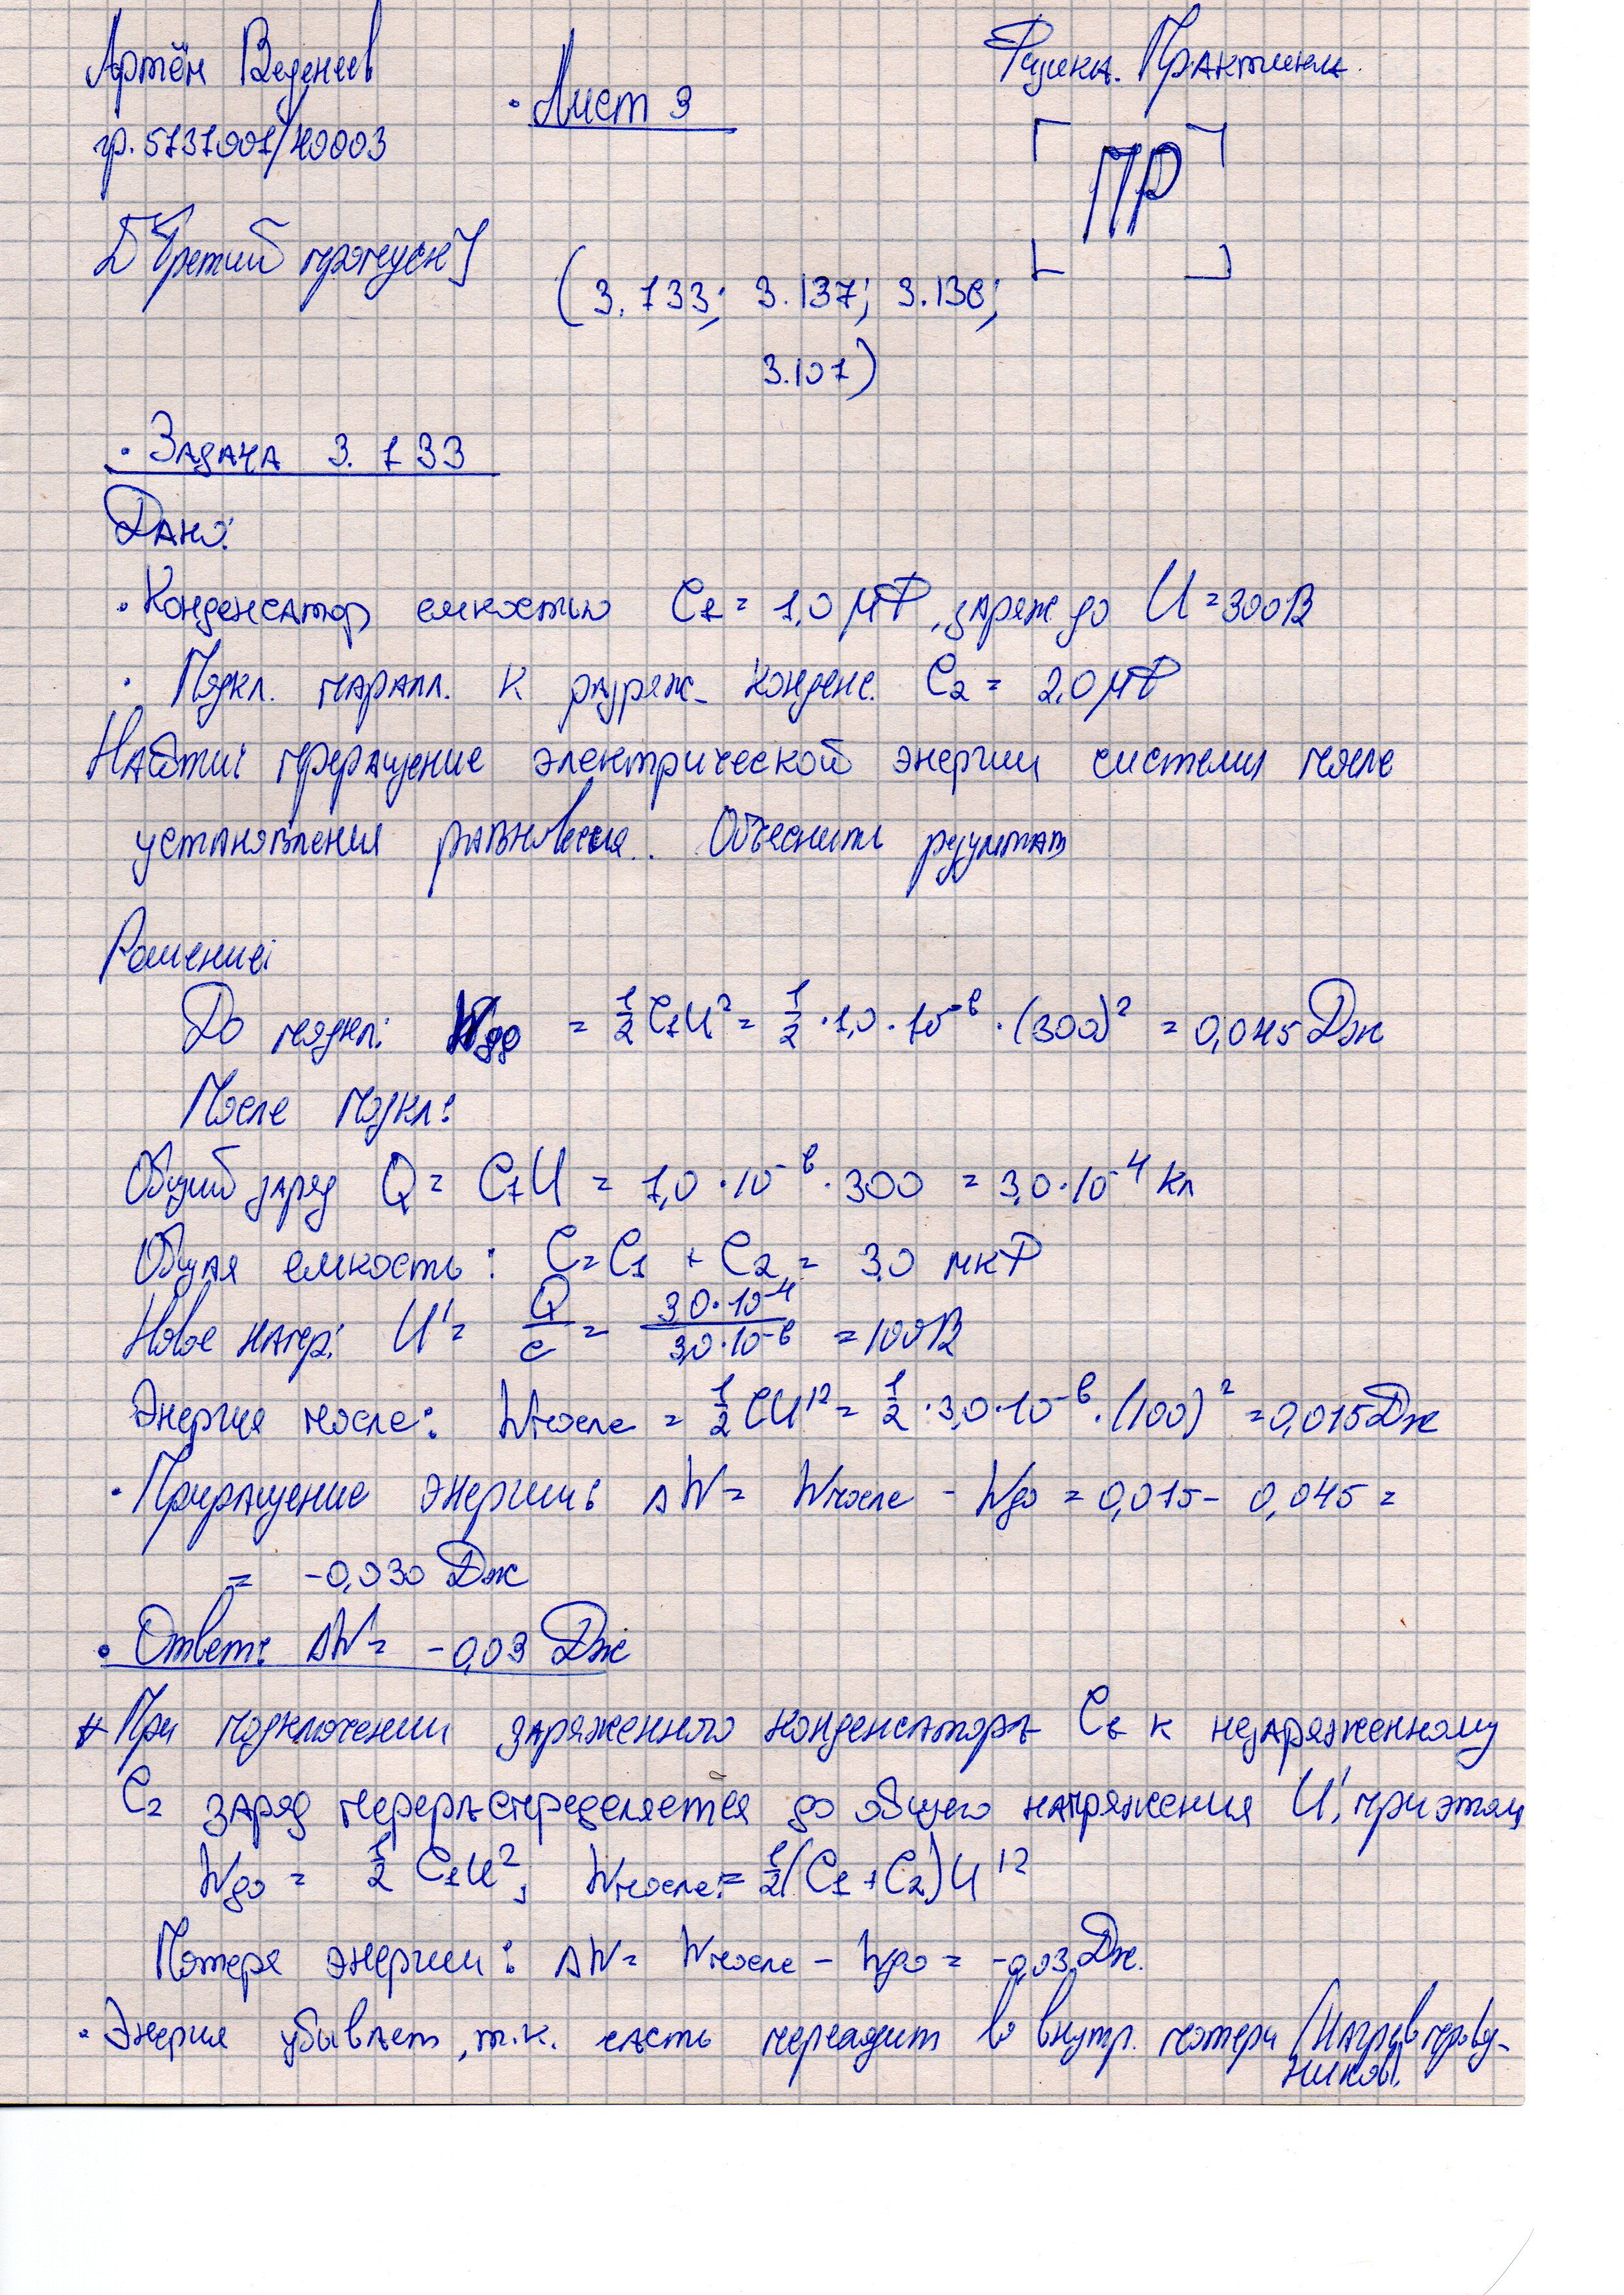 Артём Веденеев
Физика. Практика.
гр. 5131001/40003
· Лист 3
ПР
[Третий пропуск]
(3.133; 3.137; 3.138;
3.101)
· Задача 3.133
Дано:
· Конденсатор емкостью C₁ = 1,0 μФ, заряж до U = 300В
· Подкл. паралл. к разряж. конденс. C₂ = 2,0 μФ
Найти: приращение электрической энергии системы после
установления равновесия.. Объяснить результат
Решение:
До подкл: Wдо = 1/2 C₁U² = 1/2 · 1,0 · 10⁻⁶ · (300)² = 0,045 Дж
После подкл:
Общий заряд Q = C₁U = 1,0 · 10⁻⁶ · 300 = 3,0 · 10⁻⁴ Кл
Общая емкость: C = C₁ + C₂ = 3,0 мкФ
Новое напр: U' = Q/C = 3,0·10⁻⁴/3,0·10⁻⁶ = 100В
Энергия после: Wпосле = 1/2 CU'² = 1/2 · 3,0 · 10⁻⁶ · (100)² = 0,015 Дж
· Приращение энергии: ΔW = Wпосле - Wдо = 0,015 - 0,045 =
= -0,030 Дж
· Ответ: ΔW = -0,03 Дж
* При подключении заряженного конденсатора C₁ к незаряженному
C₂ заряд перераспределяется до общего напряжения U', при этом
Wдо = 1/2 C₁U², Wпосле = 1/2 (C₁ + C₂)U'²
Потеря энергии: ΔW = Wпосле - Wдо = -0,03 Дж.
· Энергия убывает, т.к. часть переходит во внутр. потери (нагрев провод-
ников).